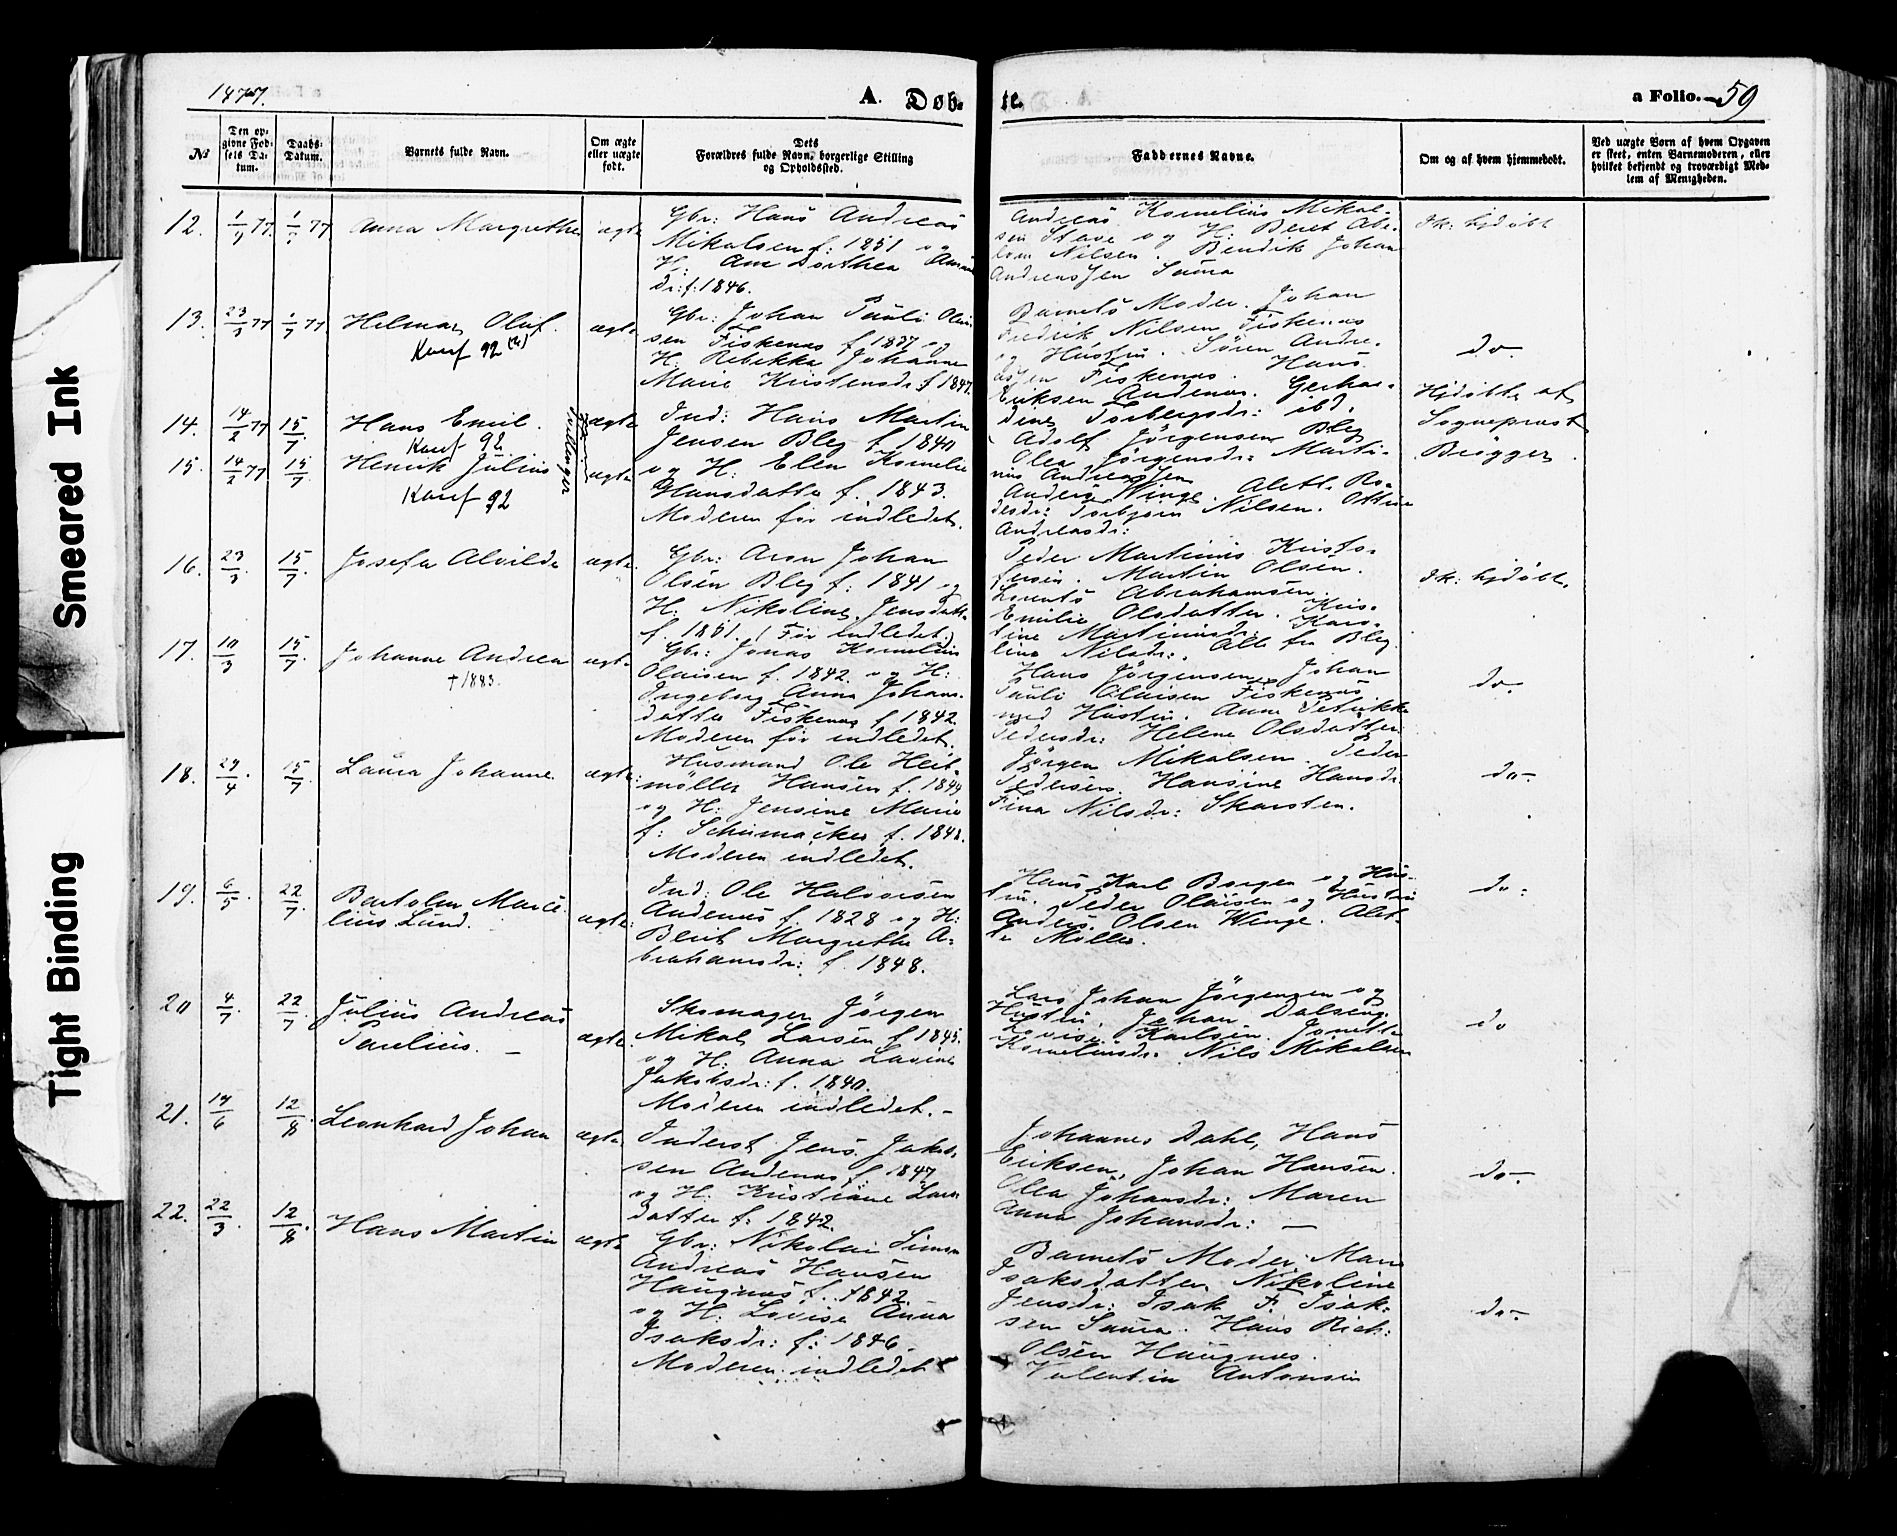 Smeared Ink
Tight Binding
1877.
A. Døb-
te.
a Folio. 59
№
Den op-
givne Fød-
sels Da-
tum.
Daabs-
Datum.
Barnets fulde Navn.
Om ægte
eller uægte
født.
Dets
Forældres fulde Navn, borgerlige Stilling
og Opholdssted.
Faddernes Navne.
Om og af hvem hjemmedøbt.
Ved uægte Børn af hvem Opgaven
er skeet, enten Barnemoderen, eller
hvilket bekjendt og troværdigt Med-
lem af Menigheden.
12. 77. 77 Anna Margrethe ægte
Gbr: Hans Andreas
Mikalsen f. 1851 og
H: Ane Dorthea
dr: f. 1846.
Andreas Kornelius Mikal-
sen Stave og H: Beret
Nilsen. Bendik Johan
Andreassen Saura
Ik: hjdøbt
13. 23/3 77 1/7 77 Helmar Oluf. ægte
Konf 92
Gbr: Johan Pauli
sen Fiskenes f 1837 og
H: Rebekka Johanne
Marie Kristensdr: f 1847.
Barnets Moder. Johan
Fredrik Nilsen Fiskenes
og Hustru. Søren Andre-
assen Fiskenes. Hans
Eriksen Andenes. Gerhar-
dine Torbergsdr: ibd.
do.
14. 14/2 77 15/7 Hans Emil. ægte
Konf 92
15. 14/2 77 15/7 Henrik Julius ægte
Konf 92
Tvillinger
Ind: Hans Martin
Jensen Bleg f 1840
og H. Elen Kornelie
Hansdatter f. 1843.
Moderen før indledet.
Adolf Jørgensen Bleg
Olea Jørgensdr: Marti-
nus Andreassen
Anders Winge. Alette Ro-
desdr: Torbjørn Nilsen. Ottine
Andreasdr:
Hjdøbte af
Sogneprest
Brøgger.
16. 23/3 15/7 Josefa Alvilde ægte.
Gbr: Aron Johan
Olsen Bleg f. 1841 og
H: Nikoline Jensdatter
f. 1851. (Før indledet.)
Peder Martinus Kristo-
fersen. Martin Olsen.
Lorents Abrahamsen.
Emilie Olsdatter. Kris-
tine Martinusdr. Karo-
line Nilsdr:. Alle fra Bleg
Ik: hjdøbt.
17. 10/3 15/7 Johanne Andrea ægte
† 1883.
Gbr: Jonas Kornelius
Olaisen f. 1842 og H:
Ingeborg Anna Johans-
datter Fiskenes f 1842
Moderen før indledet.
Hans Jørgensen. Johan
Pauli Olaisen Fiskenes
med Hustru. Anne Petrikke
Pedersdr: Helene Olsdatter
do.
18. 29/4 15/7 Laura Johanne. ægte:
Husmand Ole Heit-
møller Hansen f. 1844
og H: Jensine Marie
f: Schumacher f. 1842.
Moderen indledet.
Jørgen Mikalsen. Peder
Pedersen. Hansine Hansdr
Fina Nilsdr: Skarsten.
do-
19. 6/5 22/7 Bartolm Marce-
lius Lund. ægte:
Ind: Ole Halvorsen
Andenes f. 1828 og H:
Berit Margrethe A-
brahamsdr: f. 1848.
Hans Karl Borgen og Hus-
tru. Peder Olaisen og Hustru
Anders Olsen Winge. Alet-
te Møller.
do:
20 4/7 22/7 Julius Andreas
Parelius. – ægte
Skomager Jørgen
Mikal Larsen f 1845.
og H: Anna Lavine
Jakobsdr: f. 1840.
Moderen indledet. –
Lars Johan Jørgensen og
Hustru. Johan Dalseng.
Lovise Karlsen. Jonette
Korneliusdr. Nils Mikalsen
do
21. 19/6 12/8 Leonhard Johan ægte
Inderst Jens Jakob-
sen Andenes f. 1847
og H: Kristiane Lars-
datter f. 1842.
Johannes Dahl, Hans
Eriksen, Johan Hansen.
Olea Johansdr: Maren
Anna Johansdr: –
do-
22. 22/3 12/8 Hans Martin ægte
Gbr: Nikolai Simon
Andreas Hansen
Haugnes f. 1842.
og H: Lovise Anna
Isaksdr: f: 1846.
Moderen indledet
Barnets Moder. Mari
Isaksdatter. Nikoline
Jensdr: Isak F. Isak-
sen Saura. Hans Rich:
Olsen Haugnes.
Valentin Antonsen
do-